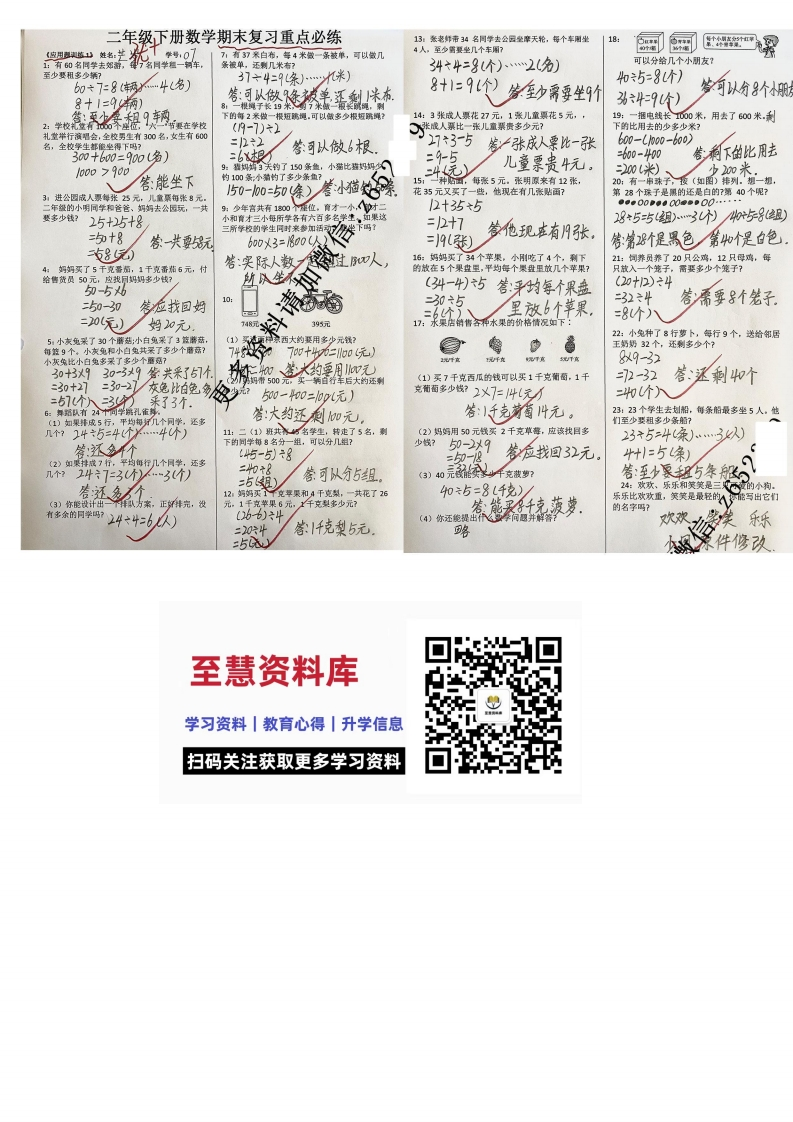 二年级下册数学期末复习重点必练
《应用题训练1》 姓名: 学号: 07
1: 有 60 名同学去郊游, 每 7 名同学租一辆车,
至少要租多少辆?
60÷7=8(辆)……4(名)
8+1=9(辆)
答:至少要租9辆.
2: 学校礼堂有 1000 个座位, "六一"节要在学校
礼堂举行演唱会, 全校男生有 300 名, 女生有 600
名, 全校学生都能坐得下吗?
300+600=900(名)
1000>900
答:能坐下
3: 进公园成人票每张 25 元, 儿童票每张 8 元,
二年级的小明同学和爸爸、妈妈去公园玩, 一共
要多少钱?
25+25+8
=50+8
=58(元)
答:一共要58元.
4: 妈妈买了 5 千克番茄, 1 千克番茄 6 元, 付
给售货员 50 元, 应找回妈妈多少钱?
50-5×6
=50-30
=20(元)
答:应找回妈
妈20元.
5: 小灰兔采了 30 个蘑菇;小白兔采了 3 篮蘑菇,
每篮 9 个。小灰兔和小白兔共采了多少个蘑菇?
小灰兔比小白兔多采了多少个蘑菇?
30+3×9 30-3×9 答:共采了57个.
=30+27 =30-27 灰色比白色多
=57(个) =3(个) 采了3个.
6: 舞蹈队有 24 个同学跳孔雀舞,
(1) 如果排成 5 行, 平均每行几个同学, 还多
几个? 24÷5=4(个)……4(个)
答:还多4个
(2) 如果排成 7 行, 平均每行几个同学, 还多
几个? 24÷7=3(个)……3(个)
答:还多3个
(3) 你能设计出一个排队方案, 正好排完, 没
有多余的同学吗?
24÷4=6(人)
7: 有 37 米白布, 每 4 米做一条被单, 可以做几
条被单, 还剩几米布?
37÷4=9(条)……1(米)
答:可以做9条被单还剩1米布.
8: 一根绳子长 19 米, 剪 7 米做一根长跳绳, 剩
下的每 2 米做一根短跳绳。可以做多少根短跳绳?
(19-7)÷2
=12÷2
=6(根)
答:可以做6根.
9: 猫妈妈 3 天钓了 150 条鱼, 小猫比猫妈妈少
钓 100 条;小猫钓了多少条鱼?
150-100=50(条) 答:小猫
9: 少年宫共有 1800 个座位, 育才一小、育才二
小和育才三小每所学各有六百多名学生, 如果这
三所学校的学生同时来参加活动
600×3=1800(人)
答:实际人数一 1800人,
10:
748元 395元
(1) 买这两样东西大约要用多少元钱?
700+400=1100(元)
答:大约要用1100元
(2) 妈妈带500 元, 买一辆自行车后大约还剩
多少元?
500-400=100(元)
答:大约还剩100元.
11: 二 (1) 班共有 45 名学生, 转走了 5 名, 剩
下的同学每 8 名分一组, 可以分几组?
(45-5)÷8
=40÷8
=5(组)
答:可以分5组.
12: 妈妈买 1 千克苹果和 4 千克梨, 一共花了 26
元, 1 千克苹果 6 元, 1 千克梨多少元?
(26-6)÷4
=20÷4
=5(元)
答:1千克梨5元.
13: 张老师带 34 名同学去公园坐摩天轮, 每个车厢坐
4 人, 至少需要坐几个车厢?
34÷4=8(个)……2(名)
8+1=9(个)
答:至少需要坐9个
14: 3 张成人票花 27 元, 1 张儿童票花 5 元, ,
1张成人票比一张儿童票贵多少元?
27÷3-5
=9-5
=4(元)
答:一张成人票比一张
儿童票贵4元。
15: 一种贴画, 每张 5 元, 张明原来有 12 张,
花 35 元又买了一些, 他现在有几张贴画?
12+35÷5
=12+7
=19(张)
答:他现在有19张。
16: 妈妈买了 34 个苹果, 小刚吃了 4 个, 剩下
的放在 5 个果盘里,平均每个果盘里放几个苹果?
(34-4)÷5
=30÷5
=6(个)
答:平均每个果盘
里放6个苹果.
17: 水果店销售各种水果的价格情况如下:
(1) 买 7 千克西瓜的钱可以买 1 千克葡萄, 1 千
克葡萄多少钱?
2×7=14(元)
答:1千克葡萄14元。
(2) 妈妈用 50 元钱买 2 千克草莓, 应该找回多
少钱?
50-2×9
=50-18
=32(元)
答:应找回32元.
(3) 40 元钱能买多少千克菠萝?
40÷5=8(千克)
答:能买8千克菠萝.
(4) 你还能提出什么数学问题并解答?
略
18:
红苹果 40个/箱
青苹果 36个/箱
每个小朋友分5个红苹
果、4个青苹果。
可以分给几个小朋友?
40÷5=8(个)
36÷4=9(个)
答:可以分8个小朋友
19: 一捆电线长 1000 米, 用去了 600 米。剩
下的比用去的少多少米?
600-(1000-600)
=600-400
=200(米)
答:剩下的比用去
少200米.
20: 有一串珠子, 按 (如图) 排列, 想一想,
第 28 个珠子是黑的还是白的? 第 40 个呢?
28÷5=5(组)……3(个) 40÷5=8(组)
答:第28个是黑色 第40个是白色.
21: 饲养员养了 20 只公鸡, 12 只母鸡, 每
4只放入一个笼子, 需要多少个笼子?
(20+12)÷4
=32÷4
=8(个)
答:需要8个笼子.
22: 小兔种了 8 行萝卜, 每行 9 个, 送给邻居
王奶奶 32 个, 还剩多少个?
8×9-32
=72-32
=40(个)
答:还剩40个
23: 23 个学生去划船, 每条船最多坐 5 人, 他
们至少要租多少条船?
23÷5=4(条)……3(人)
4+1=5(条)
答:至少要租5条船
24: 欢欢、乐乐和笑笑是三只可爱的小狗。
乐乐比欢欢重, 笑笑是最轻的。你能写出它们
的名字吗?
欢欢 笑笑 乐乐
条件修改.
更多资料请加微信:
至慧资料库
学习资料｜教育心得｜升学信息
扫码关注获取更多学习资料
至慧资料库